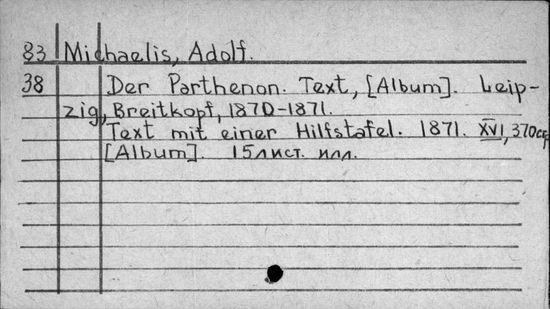 83 Michaelis, Adolf.
38 Der Parthenon. Text, [Album]. Leip-
zig, Breitkopf, 1870-1871.
Text mit einer Hilfstafel. 1871. XVI, 370стр
[Album]. 15лист. илл.